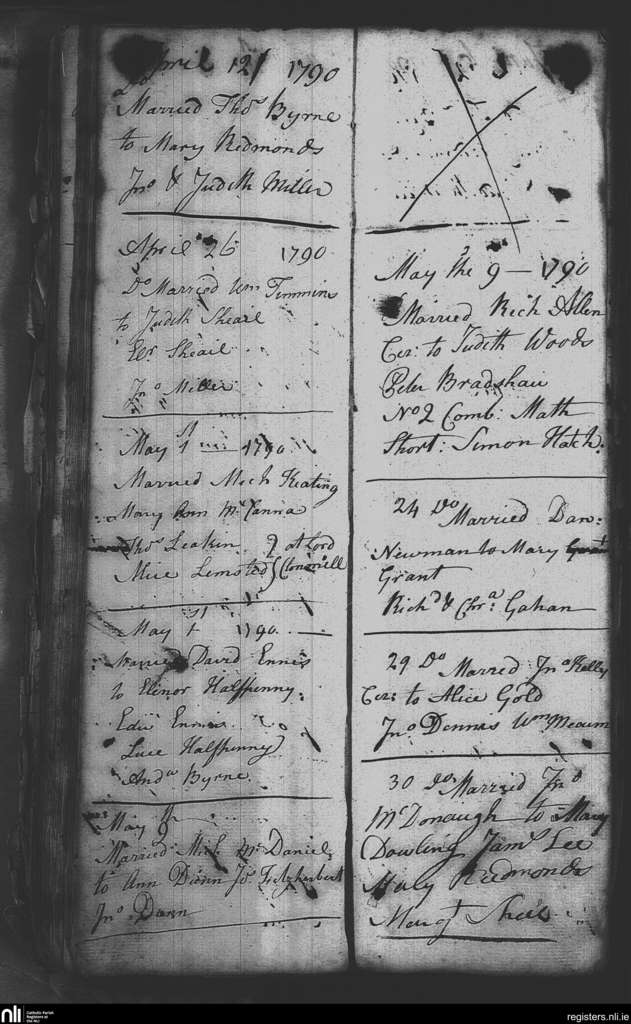 April 12 1790
Married Thos Byrne
to Mary Redmonds
Jno & Judith Miller
April 26 1790
Do Married Wm Timmins
to Judith Sheail
Sheail
Jno Miller
May 1st 1790
Married Mich Keating
Mary Ann McCanna
Thos Leakin at Lord
Alice Clonmell
May 1st 1790
Married David Ennis
to Elinor Halfpenny
Edw Ennis
Luce Halfpenny
Andw Byrne
May 9th
Married Mich McDaniel
to Ann Dunn Jos Fitzherbert
Jno Dunn
May the 9 - 1790
Married Rich Allen
Cer: to Judith Woods
Peter Bradshaw
No 2 Comb: Math
Short: Simon Hatch.
24 Do Married Dan:
Newman to Mary
Grant
Richd & Chra: Gahan
29 Do Married Jno Kelly
Cer: to Alice Gold
Jno Dennis Wm
30 Do Married Jno
McDonaugh to Mary
Dowling Jams Lee
Redmonds
Margt
nli
Catholic Parish
Registers at
the NLI
registers.nli.ie